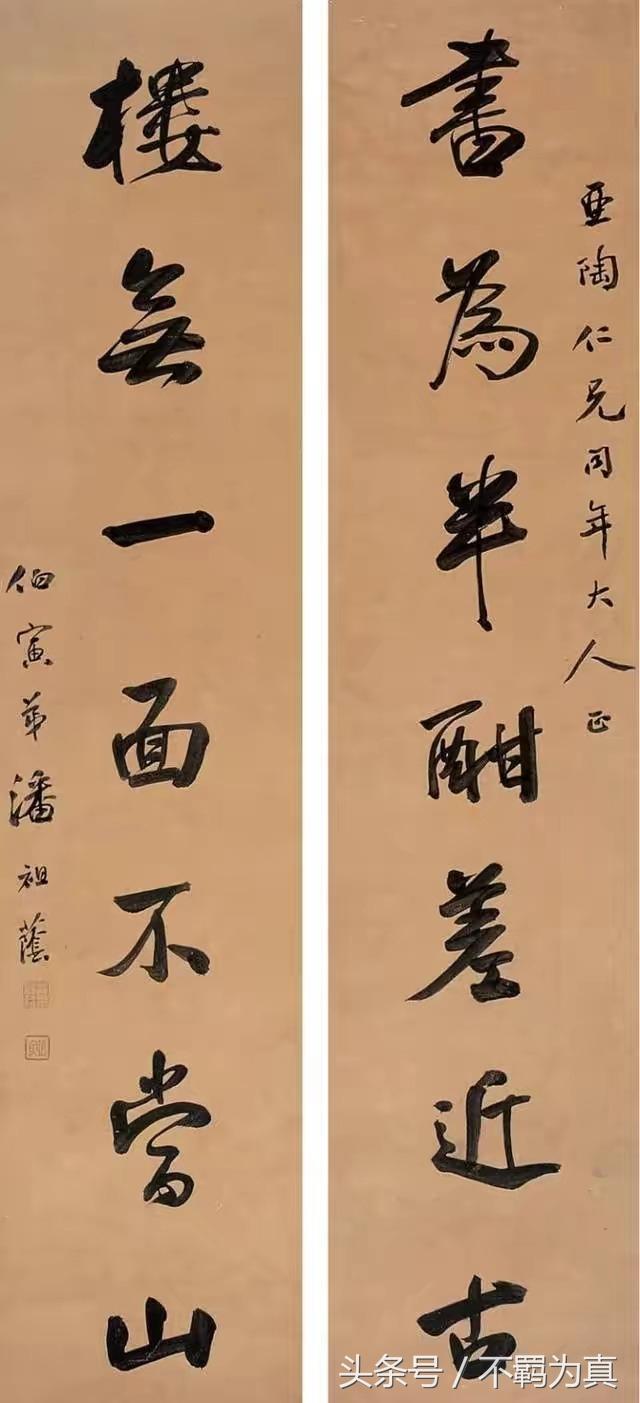 亜陶仁兄同年大人正
書為半酣差近古
樓無一面不當山
伯寅弟潘祖蔭
头条号/不羁为真